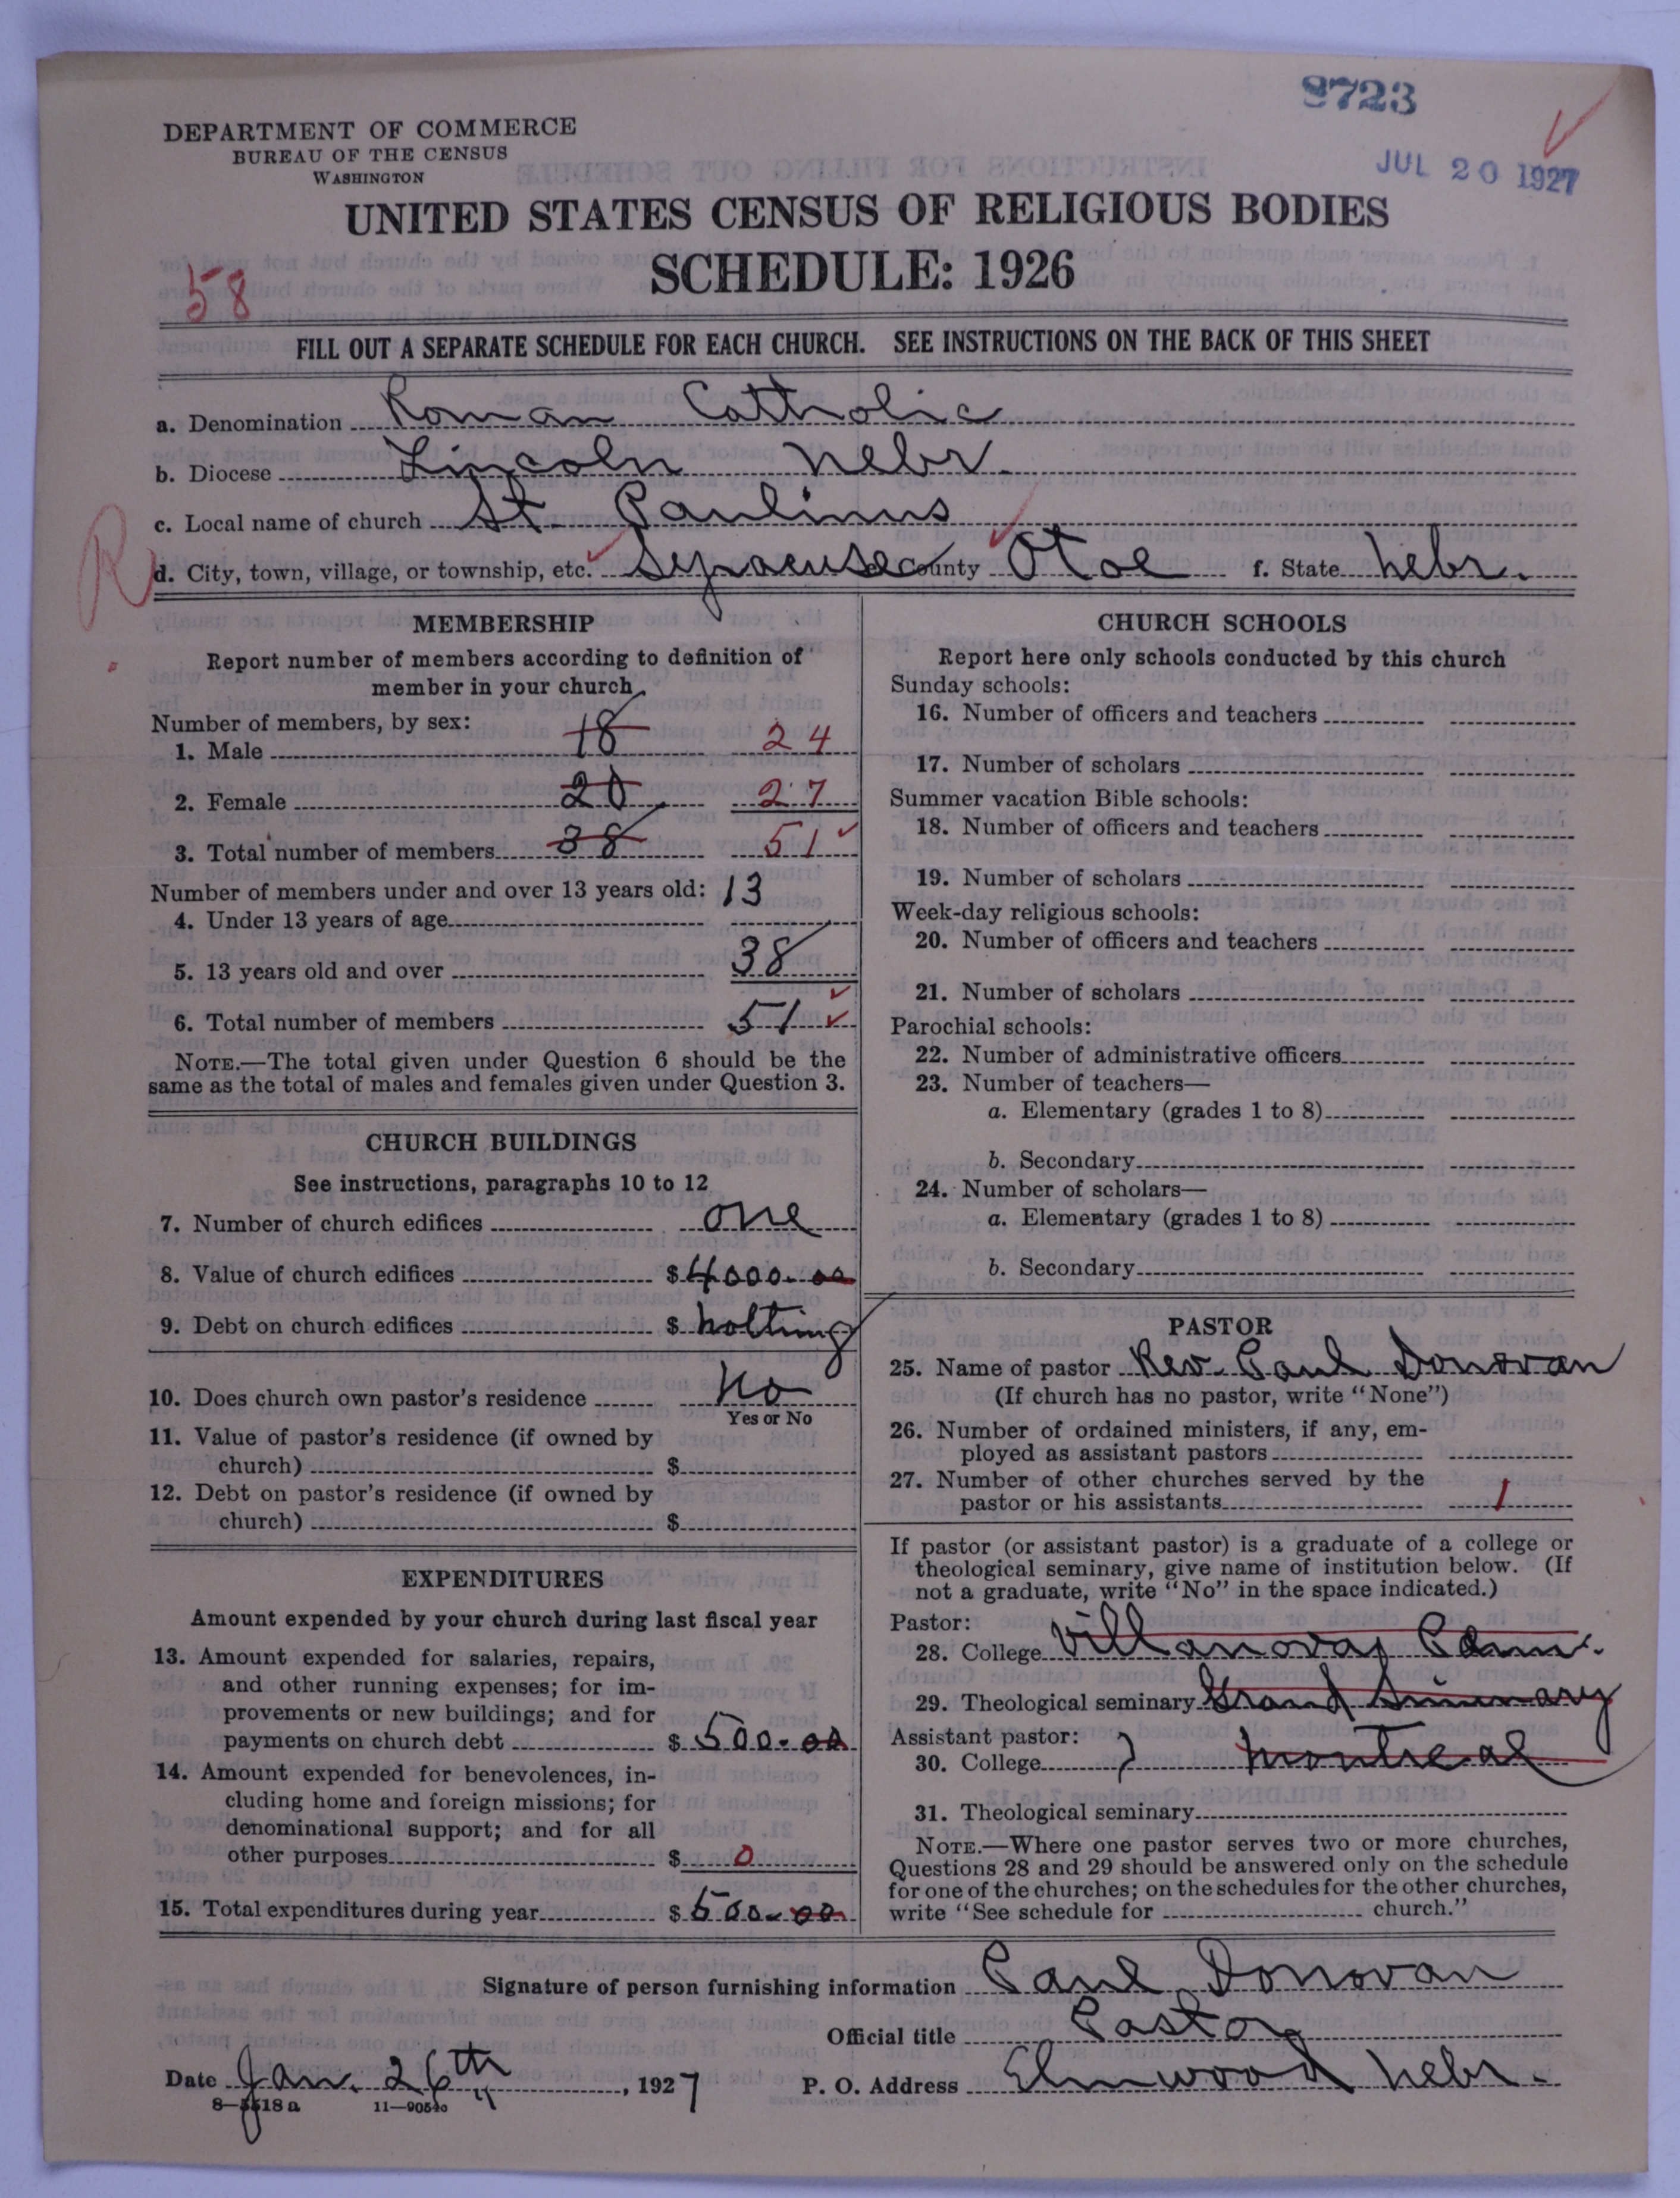 9723
JUL 20 1927
DEPARTMENT OF COMMERCE
BUREAU OF THE CENSUS
WASHINGTON
UNITED STATES CENSUS OF RELIGIOUS BODIES
SCHEDULE: 1926
58
FILL OUT A SEPARATE SCHEDULE FOR EACH CHURCH. SEE INSTRUCTIONS ON THE BACK OF THIS SHEET
a. Denomination Roman Catholic
b. Diocese Lincoln Nebr.
c. Local name of church St. Paulinus
R
d. City, town, village, or township, etc. Syracuse County Otoe f. State Nebr.
MEMBERSHIP
Report number of members according to definition of
member in your church
Number of members, by sex:
1. Male 18 24
2. Female 20 27
3. Total number of members 38 51
Number of members under and over 13 years old: 13
4. Under 13 years of age
5. 13 years old and over 38
6. Total number of members 51
NOTE.—The total given under Question 6 should be the
same as the total of males and females given under Question 3.
CHURCH BUILDINGS
See instructions, paragraphs 10 to 12
7. Number of church edifices one
8. Value of church edifices $ 4000.00
9. Debt on church edifices $ nothing
10. Does church own pastor's residence No
Yes or No
11. Value of pastor's residence (if owned by
church) $
12. Debt on pastor's residence (if owned by
church) $
EXPENDITURES
Amount expended by your church during last fiscal year
13. Amount expended for salaries, repairs,
and other running expenses; for im-
provements or new buildings; and for
payments on church debt $ 500.00
14. Amount expended for benevolences, in-
cluding home and foreign missions; for
denominational support; and for all
other purposes $ 0
15. Total expenditures during year $ 500.00
CHURCH SCHOOLS
Report here only schools conducted by this church
Sunday schools:
16. Number of officers and teachers
17. Number of scholars
Summer vacation Bible schools:
18. Number of officers and teachers
19. Number of scholars
Week-day religious schools:
20. Number of officers and teachers
21. Number of scholars
Parochial schools:
22. Number of administrative officers
23. Number of teachers—
a. Elementary (grades 1 to 8)
b. Secondary
24. Number of scholars—
a. Elementary (grades 1 to 8)
b. Secondary
PASTOR
25. Name of pastor Rev. Paul Donovan
(If church has no pastor, write "None")
26. Number of ordained ministers, if any, em-
ployed as assistant pastors
27. Number of other churches served by the
pastor or his assistants 1
If pastor (or assistant pastor) is a graduate of a college or
theological seminary, give name of institution below. (If
not a graduate, write "No" in the space indicated.)
Pastor:
28. College Villanova, Penn.
29. Theological seminary Grand Siminary
Assistant pastor:
30. College Montreal
31. Theological seminary
NOTE.—Where one pastor serves two or more churches,
Questions 28 and 29 should be answered only on the schedule
for one of the churches; on the schedules for the other churches,
write "See schedule for church."
Signature of person furnishing information Paul Donovan
Official title Pastor
Date Jan. 26th, 1927 P. O. Address Elmwood Nebr.
8—5518a 11—9054c